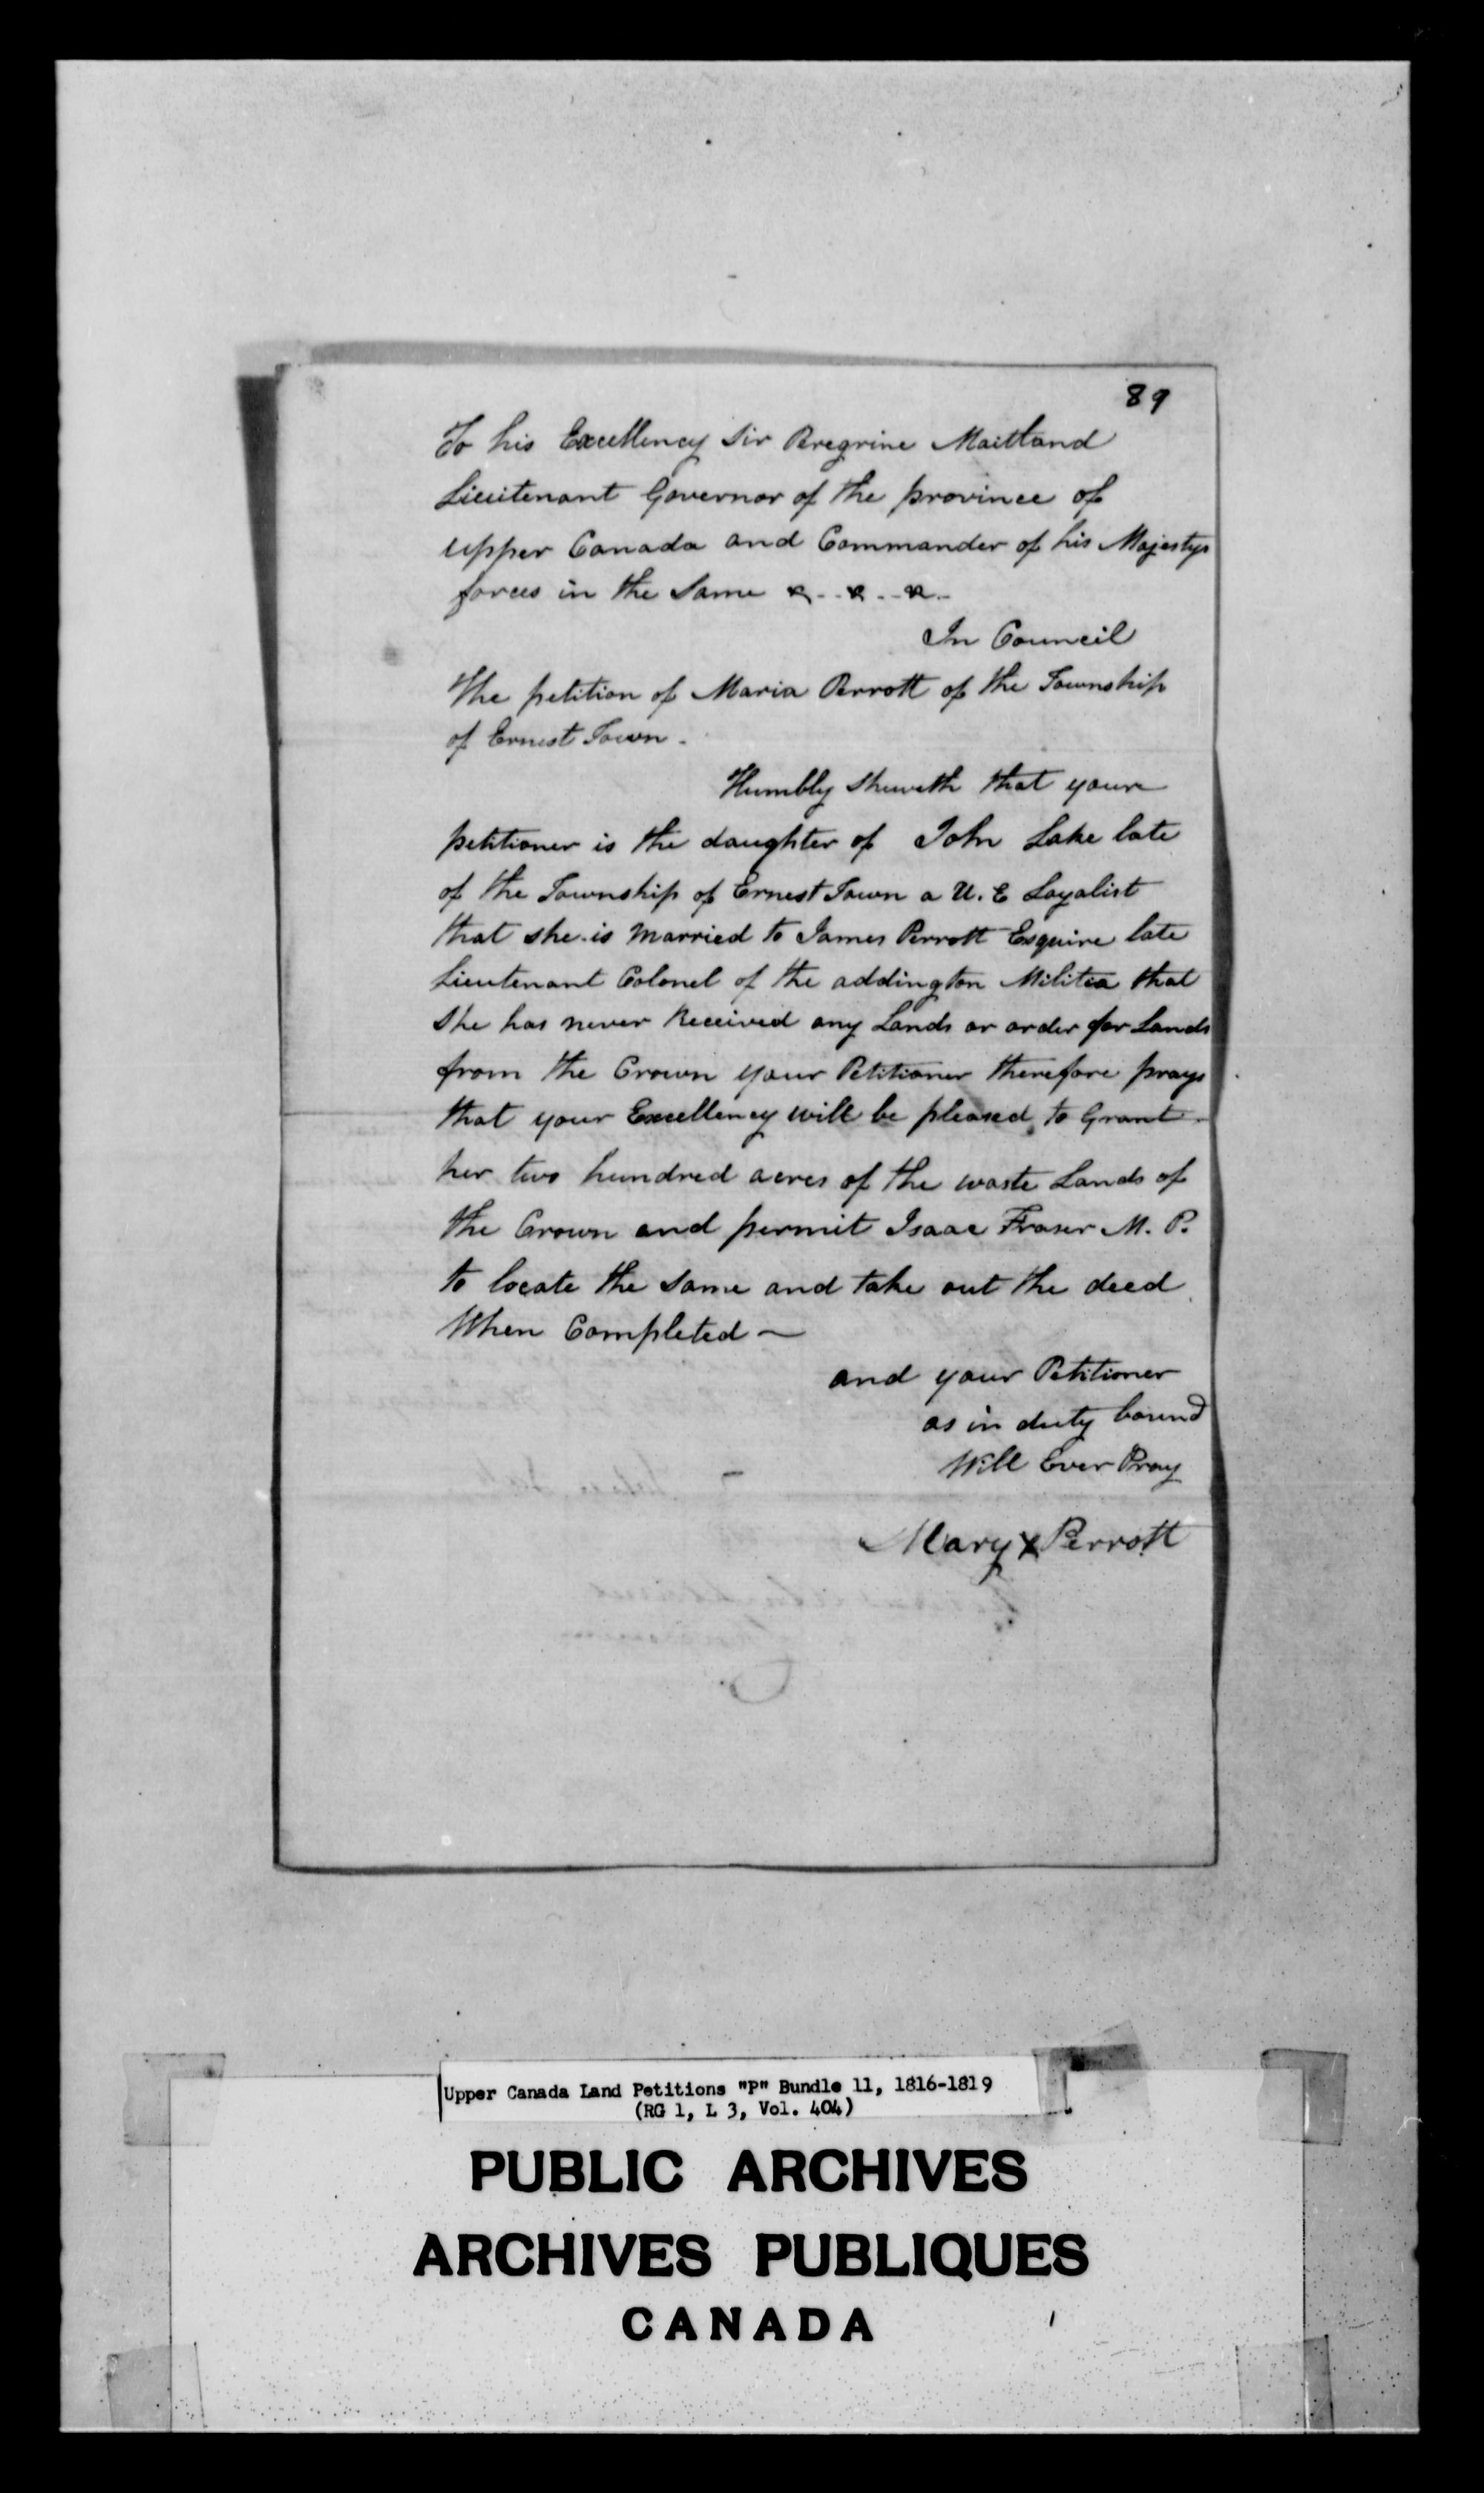 89
To his Excellency Sir Peregrine Maitland
Lieutenant Governor of the province of
Upper Canada and Commander of his Majestys
forces in the Same &.. &.. &..
In Council
The petition of Maria Perrott of the Township
of Ernest Town.
Humbly Sheweth that your
petitioner is the daughter of John Lake late
of the Township of Ernest Town a U. E Loyalist
that she is Married to James Perrott Esquire late
Lieutenant Colonel of the addington Militia that
She has never Received any Lands or order for Lands
from the Crown your Petitioner therefore prays
that your Excellency will be pleased to Grant
her two hundred acres of the waste Lands of
the Crown and permit Isaac Fraser M. P.
to locate the Same and take out the deed
When Completed ~
and your Petitioner
as in duty bound
Will Ever Pray
Mary X Perrott
Upper Canada Land Petitions "P" Bundle 11, 1816-1819
(RG 1, L 3, Vol. 404)
PUBLIC ARCHIVES
ARCHIVES PUBLIQUES
CANADA